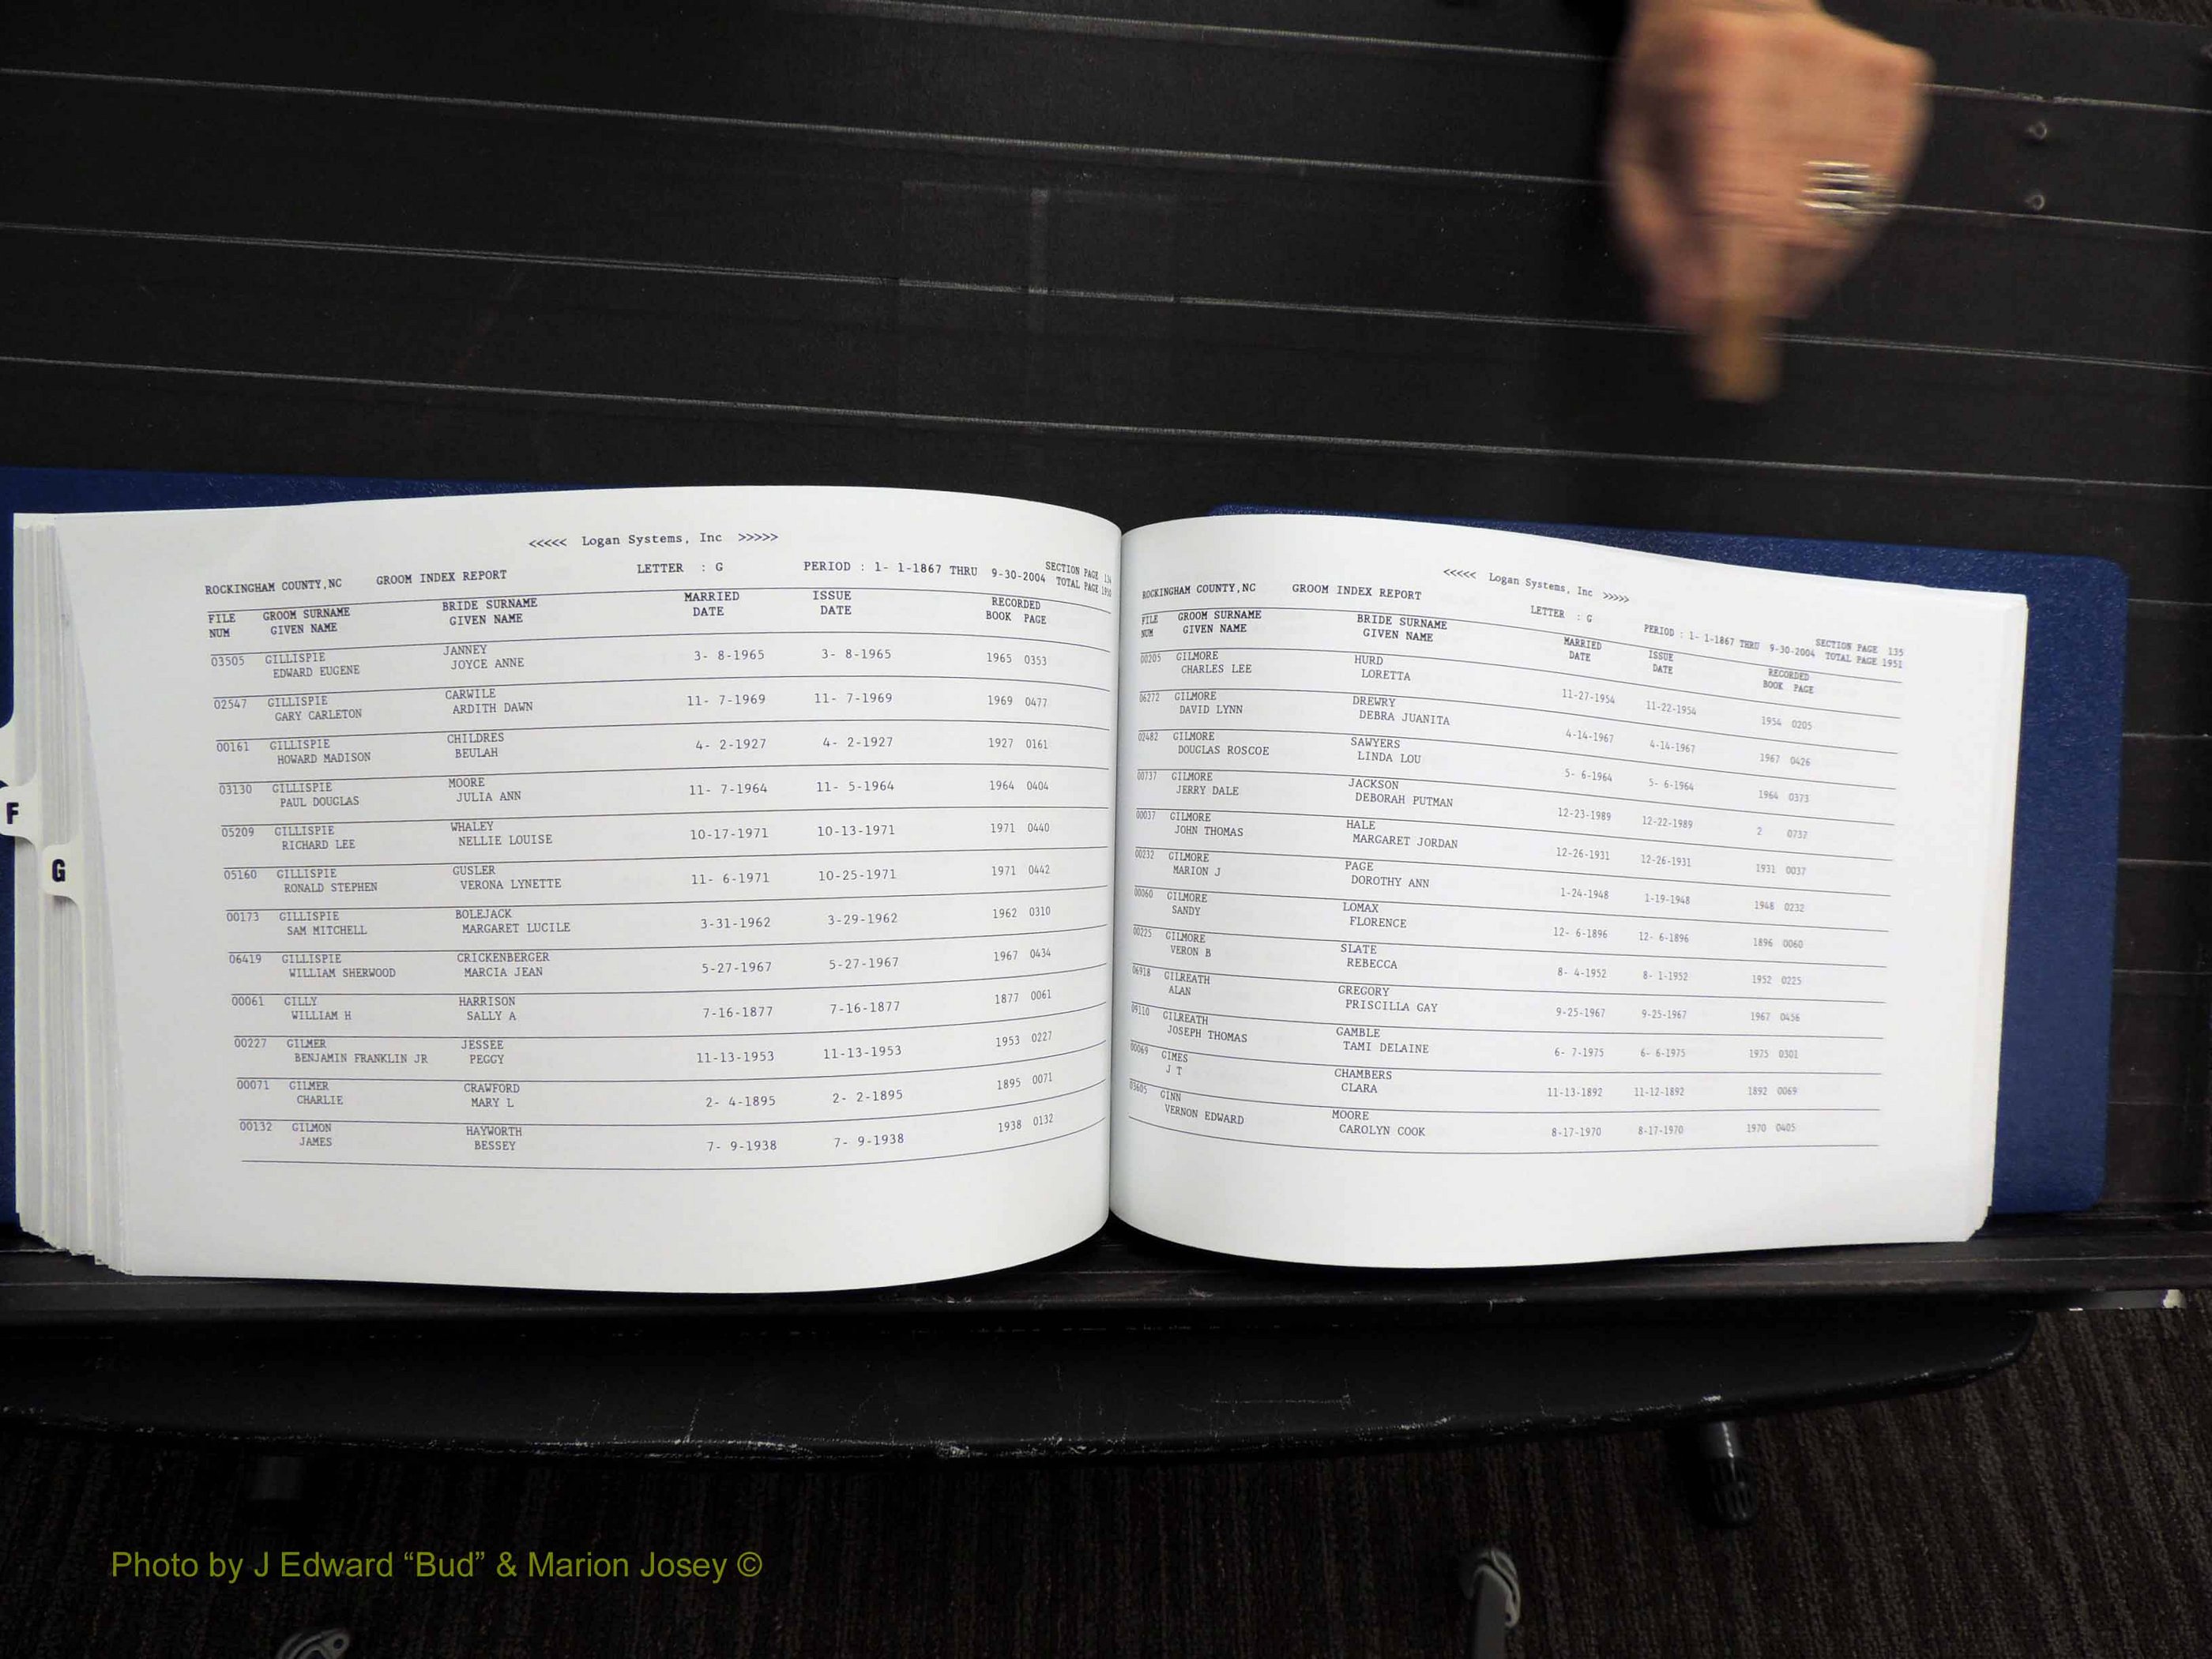 <<<<< Logan Systems, Inc >>>>>
ROCKINGHAM COUNTY,NC GROOM INDEX REPORT LETTER : G PERIOD : 1- 1-1867 THRU 9-30-2004 SECTION PAGE 134
TOTAL PAGE 1950
FILE GROOM SURNAME BRIDE SURNAME MARRIED ISSUE RECORDED
NUM GIVEN NAME GIVEN NAME DATE DATE BOOK PAGE
03505 GILLISPIE JANNEY 3- 8-1965 3- 8-1965 1965 0353
EDWARD EUGENE JOYCE ANNE
02547 GILLISPIE CARWILE 11- 7-1969 11- 7-1969 1969 0477
GARY CARLETON ARDITH DAWN
00161 GILLISPIE CHILDRES 4- 2-1927 4- 2-1927 1927 0161
HOWARD MADISON BEULAH
03130 GILLISPIE MOORE 11- 7-1964 11- 5-1964 1964 0404
PAUL DOUGLAS JULIA ANN
05209 GILLISPIE WHALEY 10-17-1971 10-13-1971 1971 0440
RICHARD LEE NELLIE LOUISE
05160 GILLISPIE GUSLER 11- 6-1971 10-25-1971 1971 0442
RONALD STEPHEN VERONA LYNETTE
00173 GILLISPIE BOLEJACK 3-31-1962 3-29-1962 1962 0310
SAM MITCHELL MARGARET LUCILE
06419 GILLISPIE CRICKENBERGER 5-27-1967 5-27-1967 1967 0434
WILLIAM SHERWOOD MARCIA JEAN
00061 GILLY HARRISON 7-16-1877 7-16-1877 1877 0061
WILLIAM H SALLY A
00227 GILMER JESSEE 11-13-1953 11-13-1953 1953 0227
BENJAMIN FRANKLIN JR PEGGY
00071 GILMER CRAWFORD 2- 4-1895 2- 2-1895 1895 0071
CHARLIE MARY L
00132 GILMON HAYWORTH 7- 9-1938 7- 9-1938 1938 0132
JAMES BESSEY
F
G
<<<<< Logan Systems, Inc >>>>>
ROCKINGHAM COUNTY,NC GROOM INDEX REPORT LETTER : G PERIOD : 1- 1-1867 THRU 9-30-2004 SECTION PAGE 135
TOTAL PAGE 1951
FILE GROOM SURNAME BRIDE SURNAME MARRIED ISSUE RECORDED
NUM GIVEN NAME GIVEN NAME DATE DATE BOOK PAGE
00205 GILMORE HURD 11-27-1954 11-22-1954 1954 0205
CHARLES LEE LORETTA
06272 GILMORE DREWRY 4-14-1967 4-14-1967 1967 0426
DAVID LYNN DEBRA JUANITA
02482 GILMORE SAWYERS 5- 6-1964 5- 6-1964 1964 0373
DOUGLAS ROSCOE LINDA LOU
00737 GILMORE JACKSON 12-23-1989 12-22-1989 2 0737
JERRY DALE DEBORAH PUTMAN
00037 GILMORE HALE 12-26-1931 12-26-1931 1931 0037
JOHN THOMAS MARGARET JORDAN
00232 GILMORE PAGE 1-24-1948 1-19-1948 1948 0232
MARION J DOROTHY ANN
00060 GILMORE LOMAX 12- 6-1896 12- 6-1896 1896 0060
SANDY FLORENCE
00225 GILMORE SLATE 8- 4-1952 8- 1-1952 1952 0225
VERON B REBECCA
06918 GILREATH GREGORY 9-25-1967 9-25-1967 1967 0456
ALAN PRISCILLA GAY
09110 GILREATH GAMBLE 6- 7-1975 6- 6-1975 1975 0301
JOSEPH THOMAS TAMI DELAINE
00069 GIMES CHAMBERS 11-13-1892 11-12-1892 1892 0069
J T CLARA
03605 GINN MOORE 8-17-1970 8-17-1970 1970 0405
VERNON EDWARD CAROLYN COOK
Photo by J Edward “Bud” & Marion Josey ©